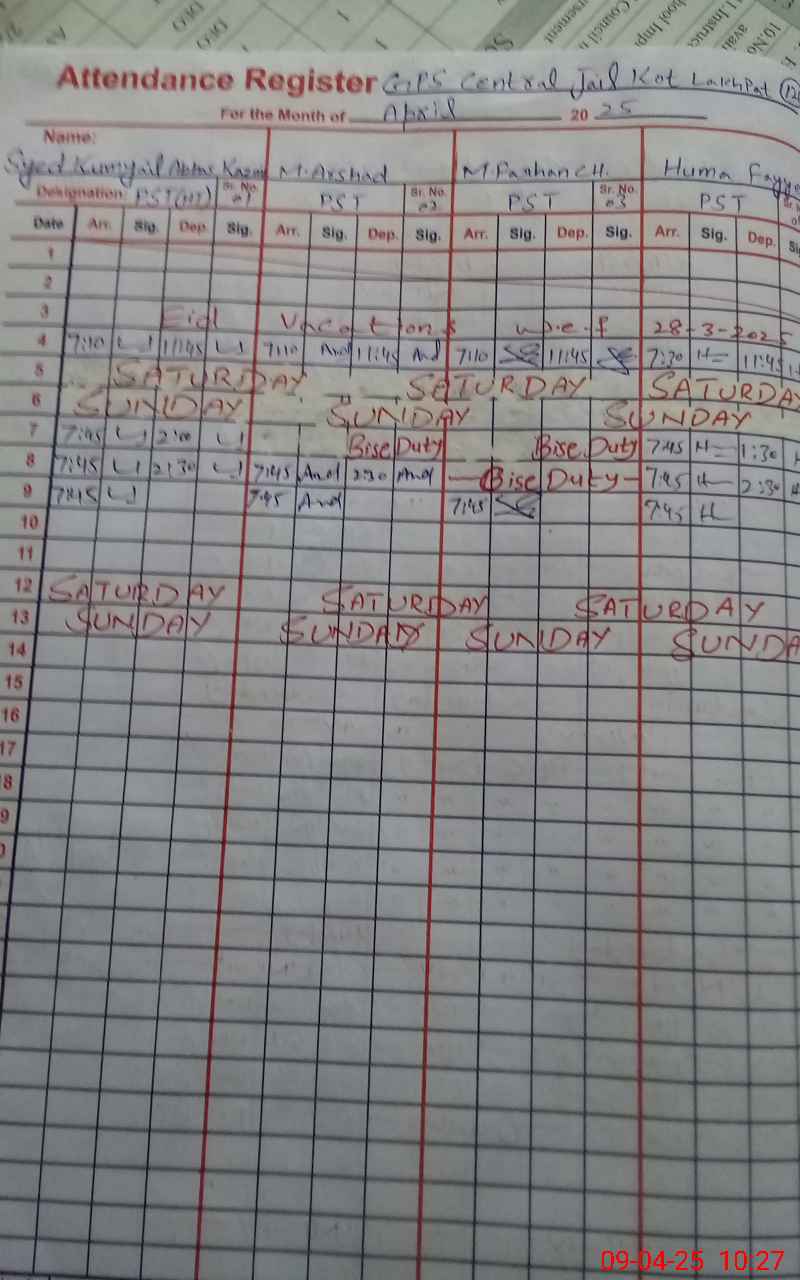 Attendance Register GPS Central Jail Kot Lakhpat
For the Month of April 20 25
Name:
Syed Kumyail Abbas Kazmi M. Arshad M. Farhan CH. Huma Fayya
Designation: PST(HT) Sr. No. 01 PST Sr. No. 02 PST Sr. No. 03 PST
Date Arr. Sig. Dep. Sig. Arr. Sig. Dep. Sig. Arr. Sig. Dep. Sig. Arr. Sig. Dep.
1
2
3 Eid Vacations w.e.f 28-3-2025
4 7:10 11:45 7:10 And 11:45 And 7:10 11:45 7:30 H 11:45
5 SATURDAY SATURDAY SATURDAY
6 SUNDAY SUNDAY SUNDAY
7 7:45 2:00 Bise Duty Bise Duty 7:45 H 1:30
8 7:45 2:30 7:45 And 2:30 And Bise Duty 7:45 H 2:30
9 7:45 7:45 And 7:45 7:45 H
10
11
12 SATURDAY SATURDAY SATURDAY
13 SUNDAY SUNDAY SUNDAY SUNDA
14
15
16
17
8
9
09-04-25 10:27